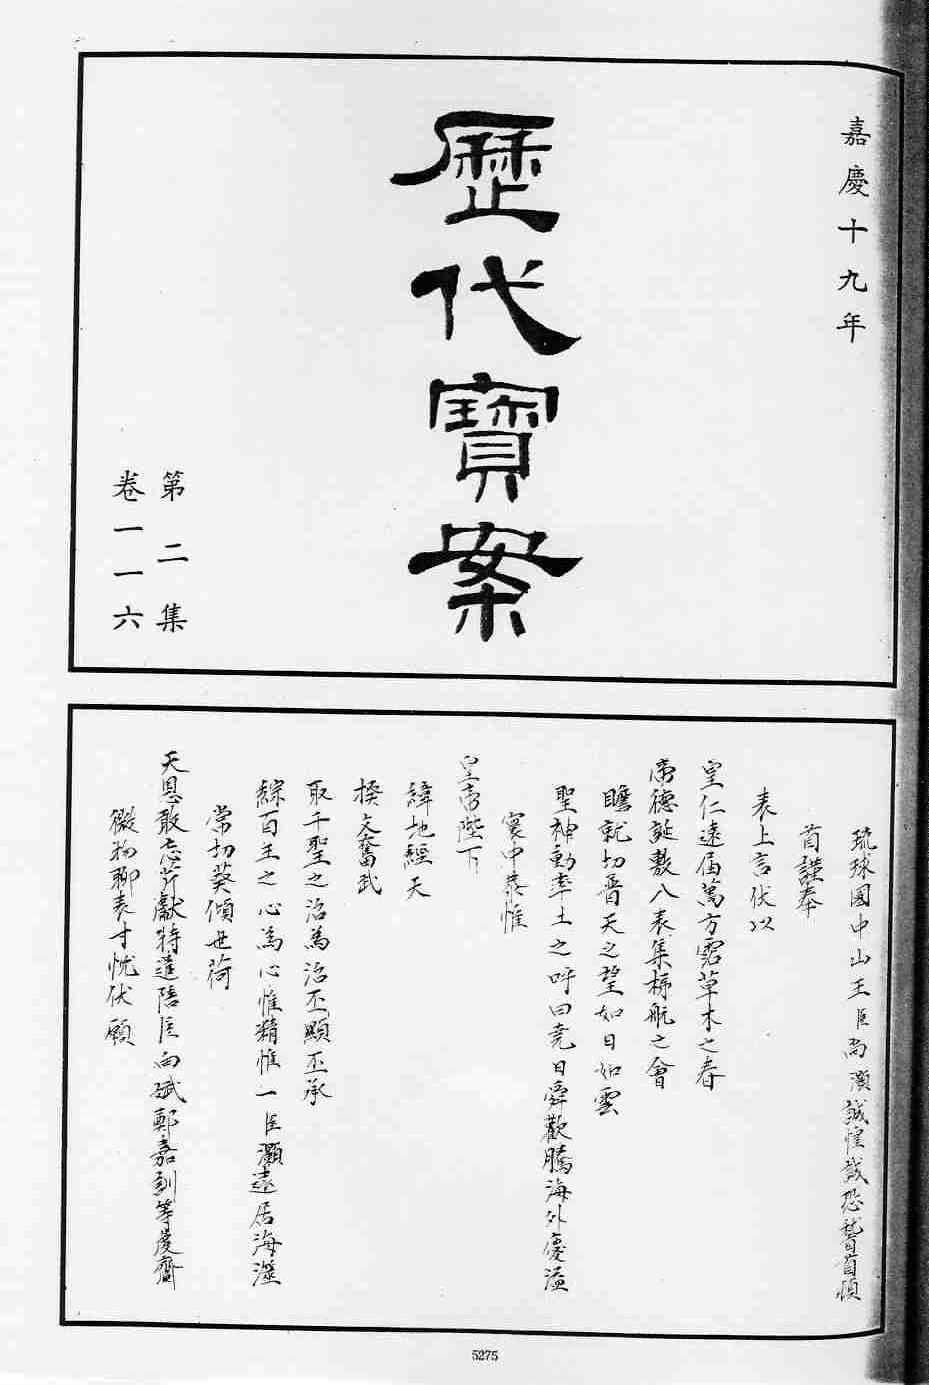 嘉慶十九年
歷代寶案
第二集
卷一一六
琉球國中山王臣尚灝誠惶誠恐稽首頓
首謹奉
表上言伏以
皇仁遠届萬方霑草木之春
帝德誕敷八表集梯航之會
瞻就切普天之望如日如雲
聖神動率土之呼曰堯曰舜歡騰海外慶溢
寰中恭惟
皇帝陛下
緯地經天
揆文奮武
取千聖之治為治丕顯丕承
綜百王之心為心惟精惟一臣灝遠居海澨
常切葵傾世荷
天恩敢忘芹獻特遣陪臣向斌鄭嘉訓等虔齎
微物聊表寸忱伏願
5275